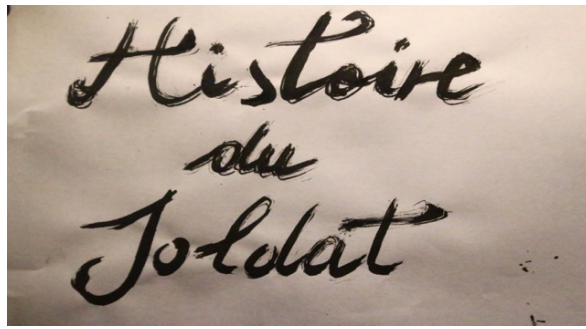 Histoire
du
Soldat